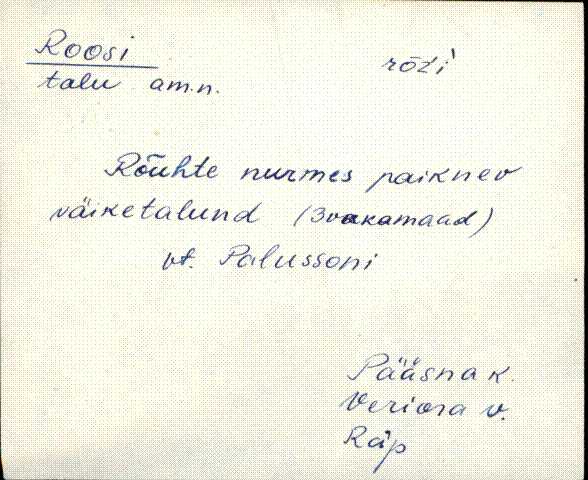 Roosi rōži
talu am.n.
Rõuhte nurmes paiknev
väiketalund (3 vakamaad)
vt. Palussoni
Pääsna k.
Veriora v.
Räp